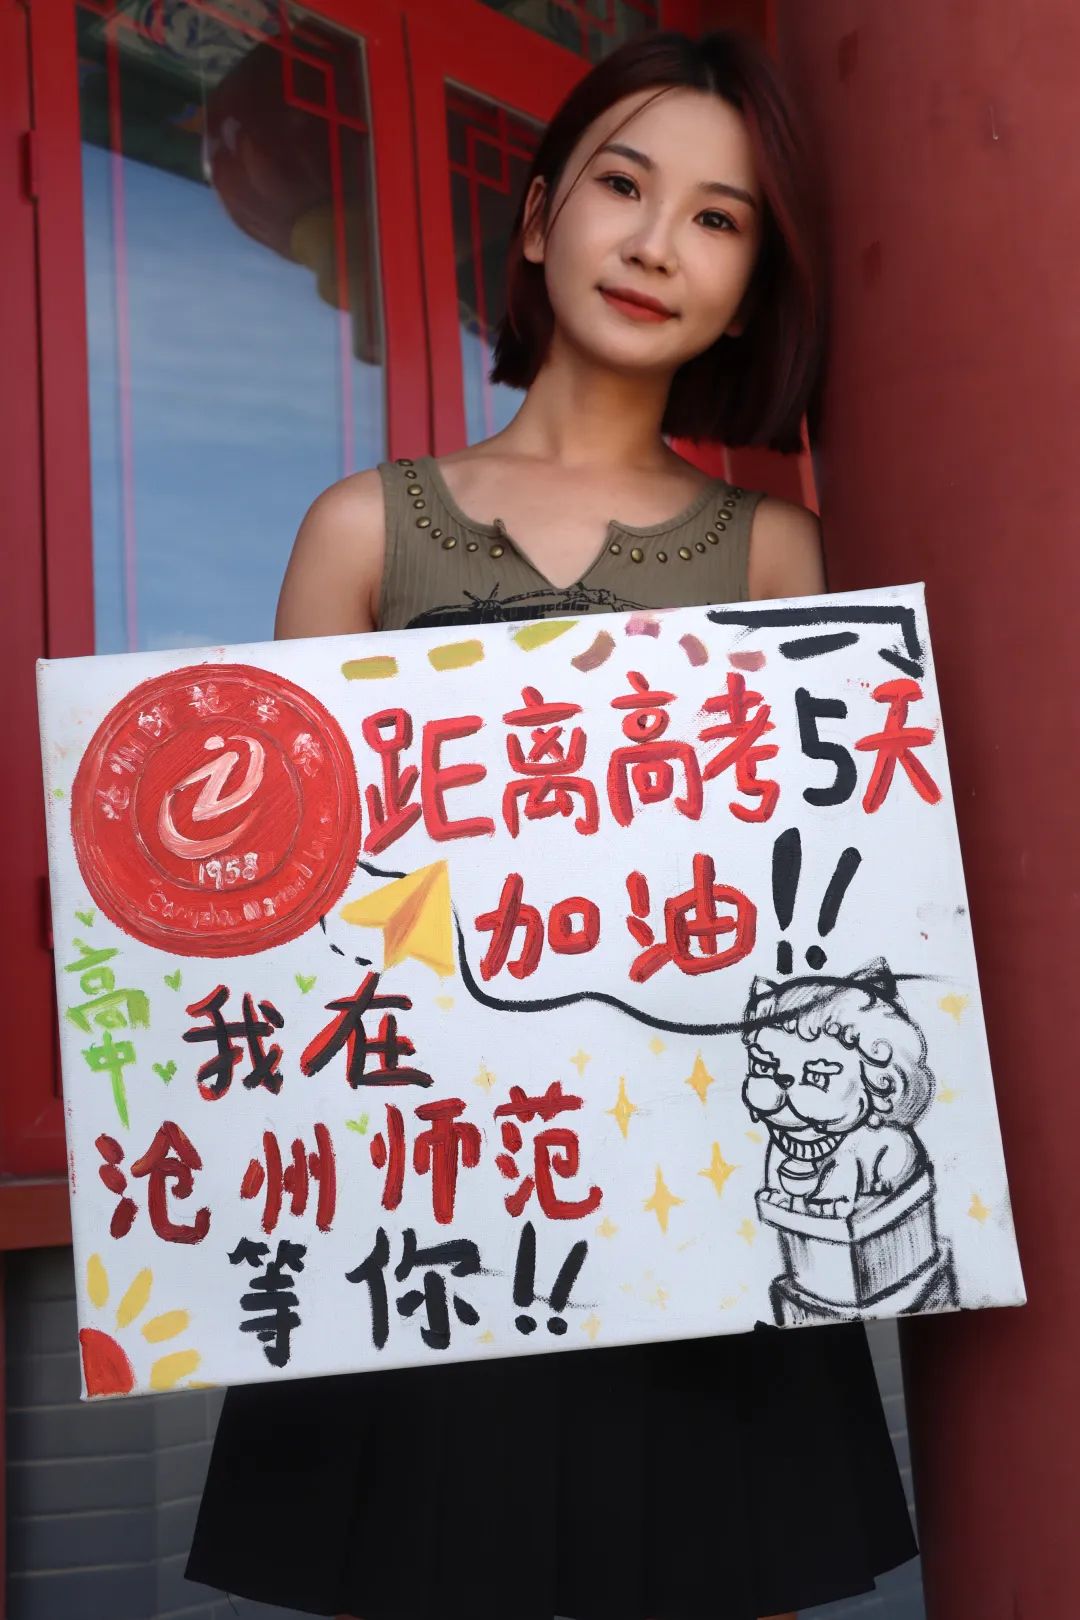 沧州师范学院
1958
距离高考5天
加油!!
高中
我在
沧州师范
等你!!